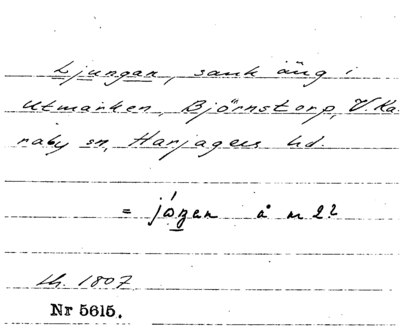 Ljungan, sank äng i
utmarken, Björnstorp, V. Ka-
raby sn, Harjagers hd.
= jóʒen å m 2?
Nr 5615.